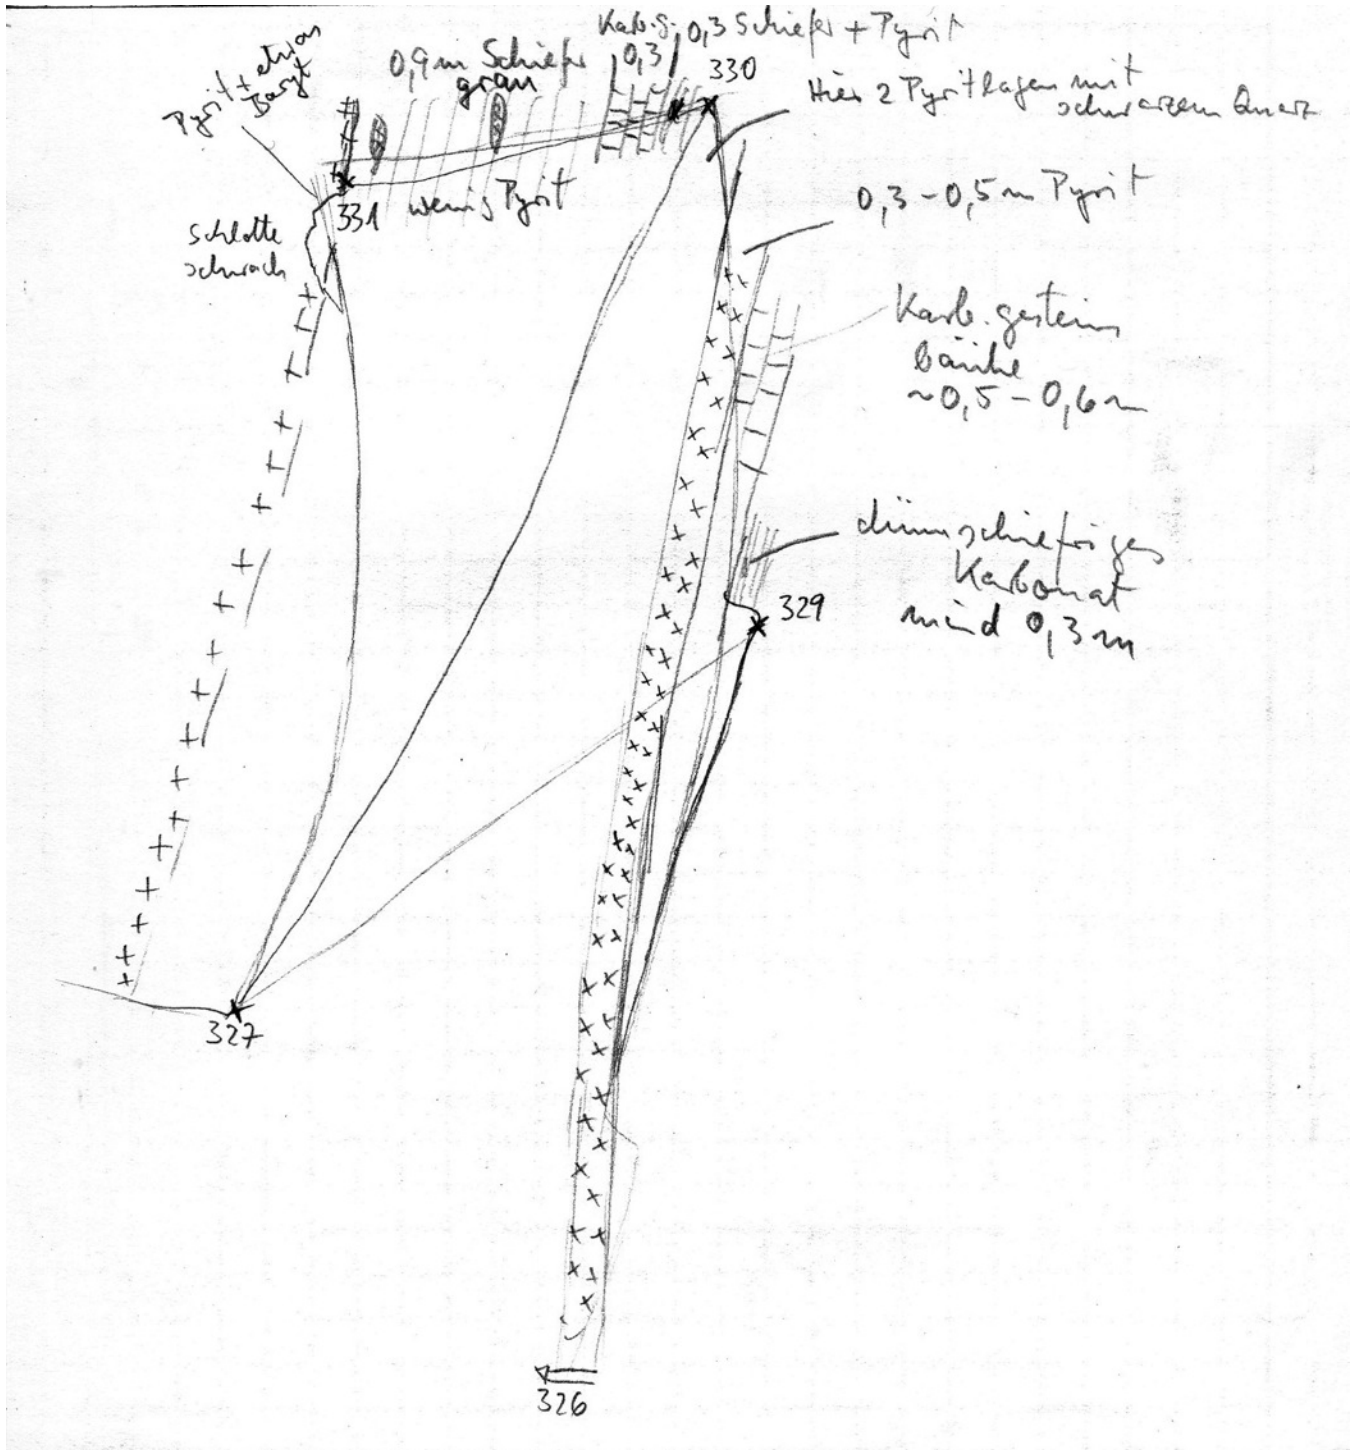 Pyrit + etwas
Baryt
0,9 m Schiefer
grau
Karb.g. 0,3 Schiefer + Pyrit
0,3
330
Hier 2 Pyritlagen mit
schwarzem Quarz
331
wenig Pyrit
0,3 - 0,5 m Pyrit
Schlotte
schwach
Karb. gesteins
bänke
~0,5 - 0,6 m
dünnschiefriges
Karbonat
mind 0,3 m
329
327
326